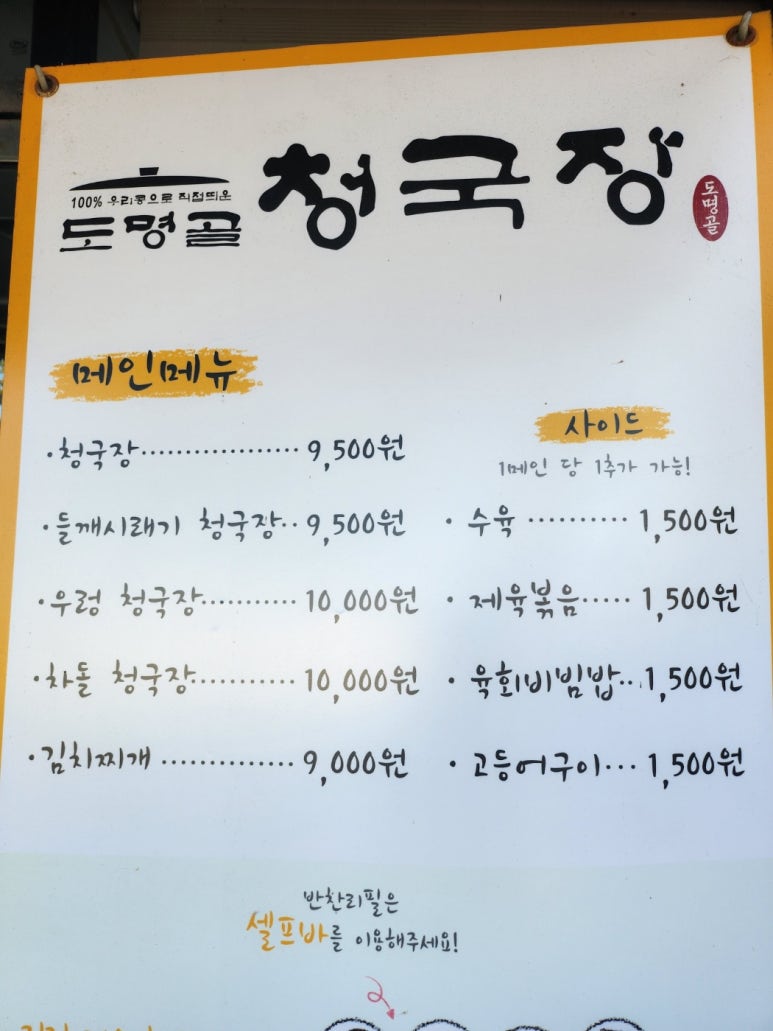 100% 우리콩으로 직접띄운
도명골 청국장
도명골
메인메뉴
·청국장 ················· 9,500원
·들깨시래기 청국장·· 9,500원
·우렁 청국장·········· 10,000원
·차돌 청국장·········· 10,000원
·김치찌개 ·············· 9,000원
사이드
1메인 당 1추가 가능!
· 수육 ·········· 1,500원
· 제육볶음····· 1,500원
· 육회비빔밥·· 1,500원
· 고등어구이··· 1,500원
반찬리필은
셀프바를 이용해주세요!